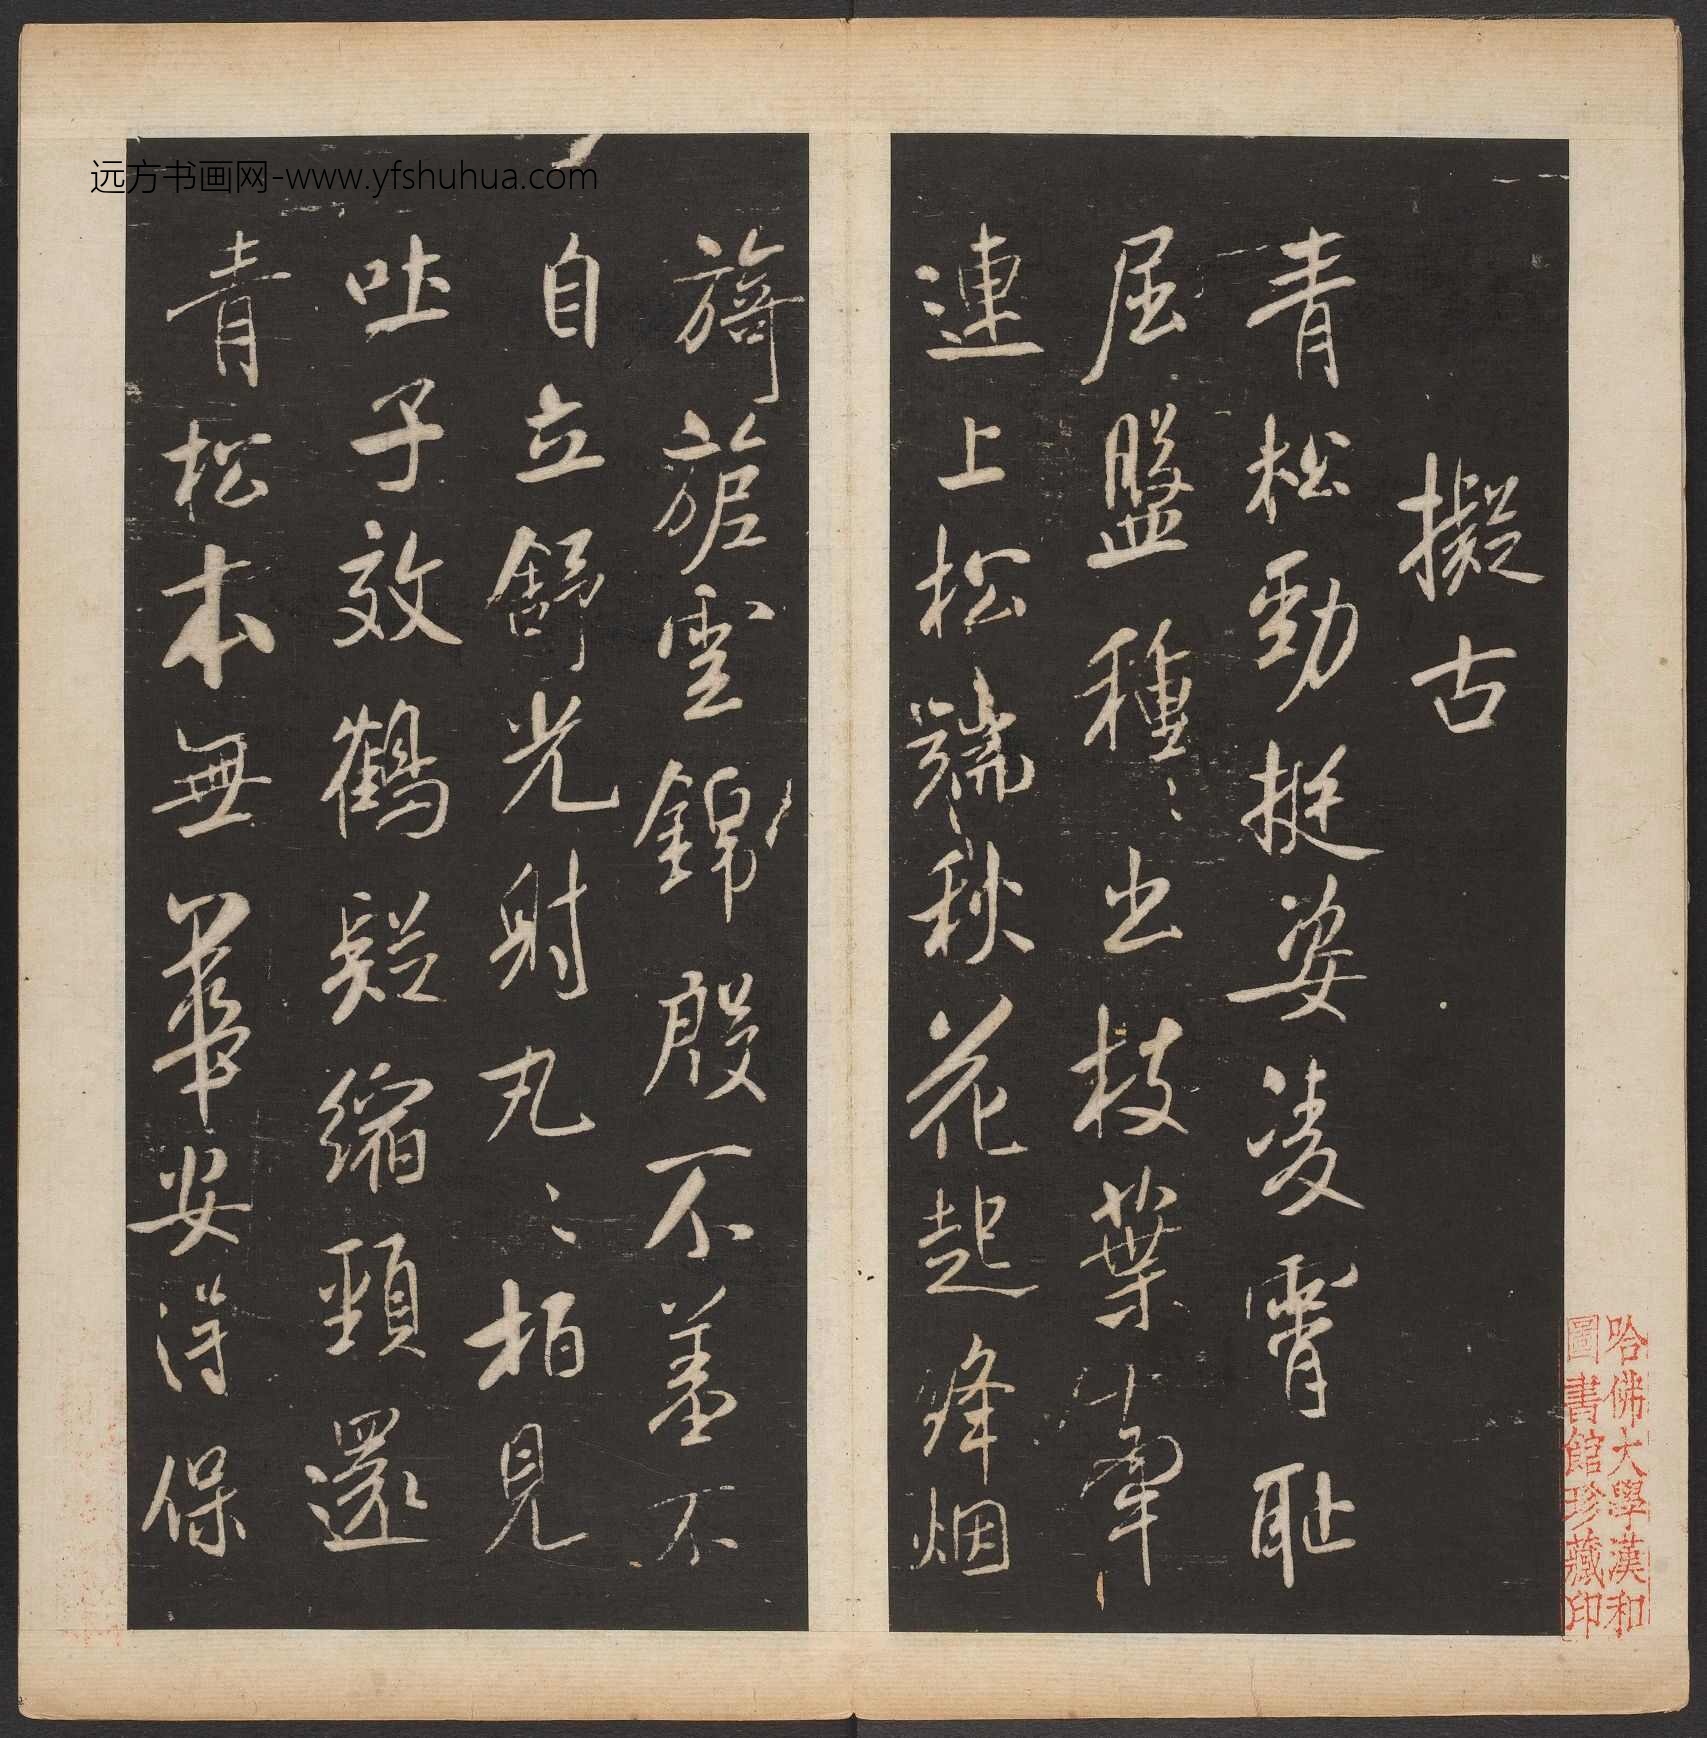 远方书画网-www.yfshuhua.com
擬古
青松勁挺姿凌霄恥
屈盤種〻出枝葉牽
連上松端秋花起烽烟
旖旎雲錦殷不羞不
自立舒光射丸〻柏見
吐子效鶴疑縮頸還
青松本無華安得保
哈佛大學漢和
圖書館珍藏印